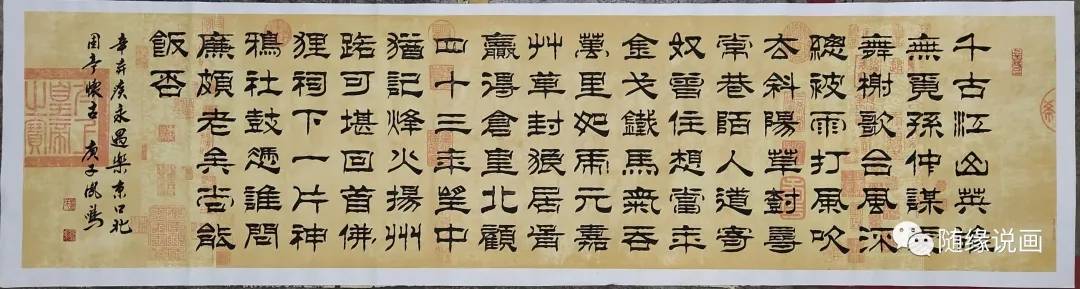 千古江山英雄
無覓孫仲謀處
舞榭歌台風流
總被雨打風吹
去斜陽草樹尋
常巷陌人道寄
奴曾住想當年
金戈鐵馬氣吞
萬里如虎元嘉
艸草封狼居胥
贏得倉皇北顧
四十三年望中
猶記烽火揚州
路可堪回首佛
狸祠下一片神
鴉社鼓憑誰問
廉頗老矣尚能
飯否
辛弃疾永遇樂京口北
固亭懷古 庚子
随缘说画